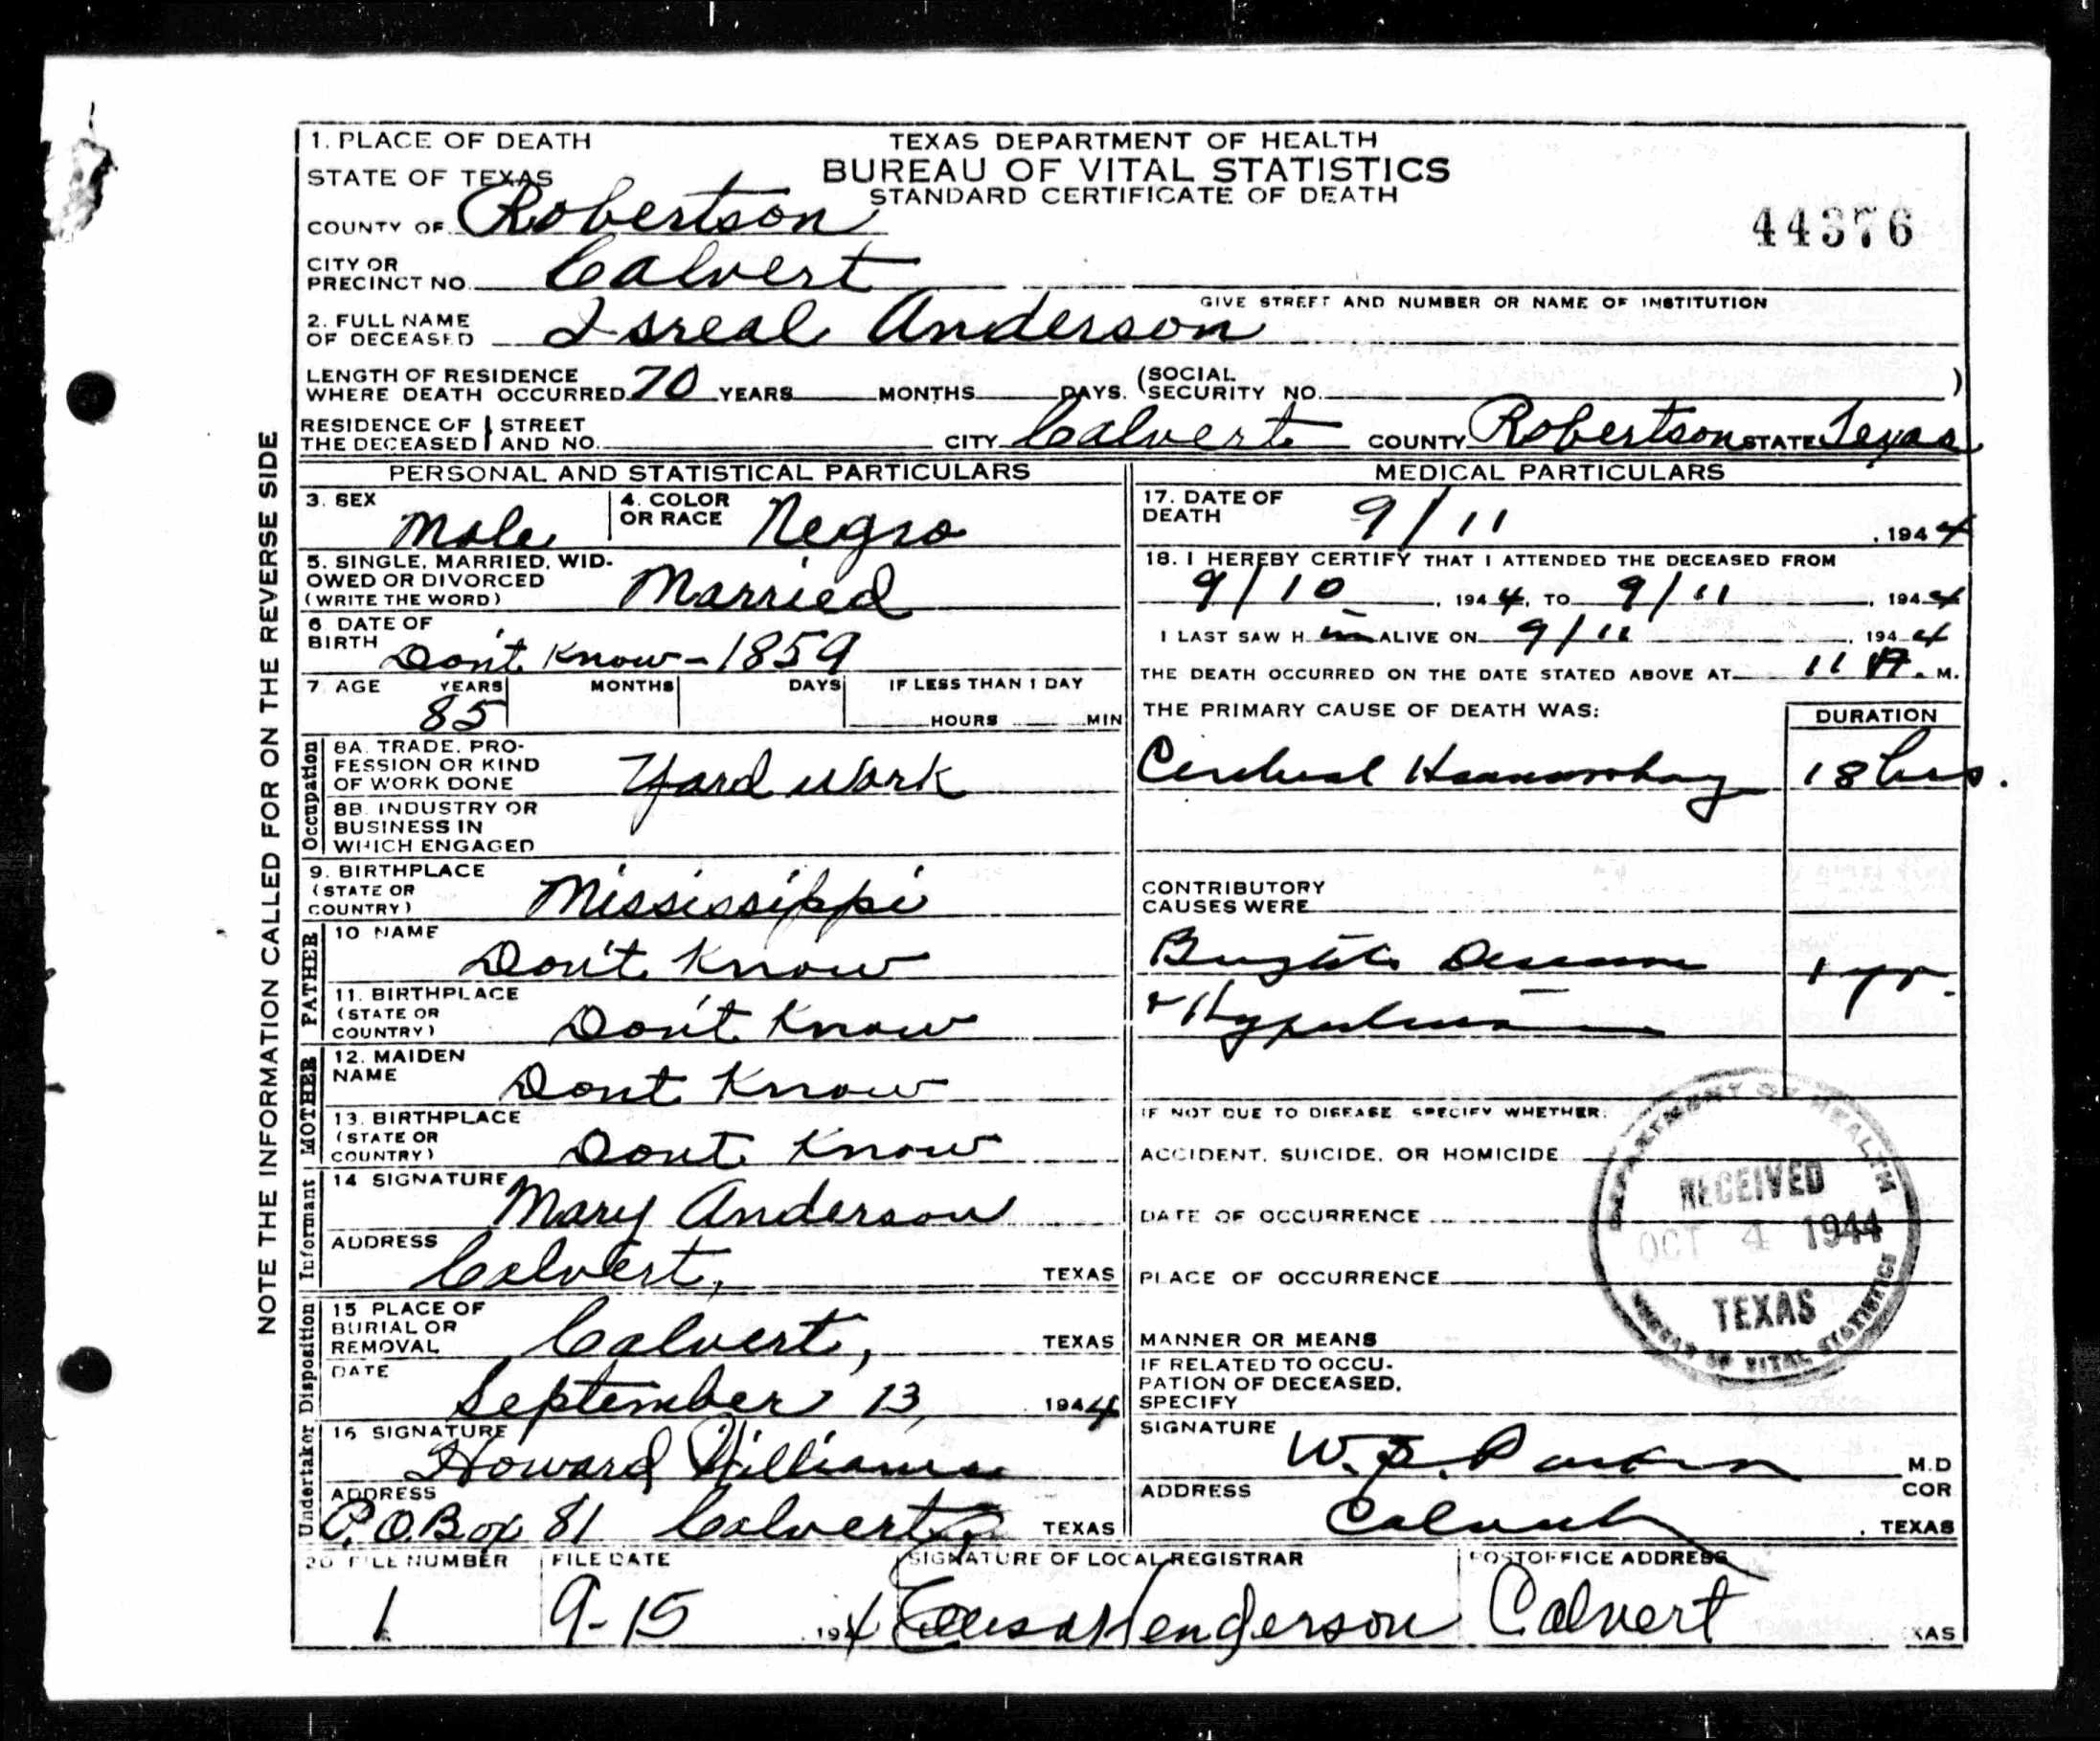 1. PLACE OF DEATH
TEXAS DEPARTMENT OF HEALTH
STATE OF TEXAS
BUREAU OF VITAL STATISTICS
STANDARD CERTIFICATE OF DEATH
COUNTY OF Robertson
44376
CITY OR
PRECINCT NO. Calvert
GIVE STREET AND NUMBER OR NAME OF INSTITUTION
2. FULL NAME
OF DECEASED Isreal Anderson
LENGTH OF RESIDENCE
WHERE DEATH OCCURRED 70 YEARS MONTHS DAYS. (SOCIAL SECURITY NO. )
RESIDENCE OF THE DECEASED STREET AND NO. CITY Calvert COUNTY Robertson STATE Texas
NOTE THE INFORMATION CALLED FOR ON THE REVERSE SIDE
PERSONAL AND STATISTICAL PARTICULARS
3. SEX Male 4. COLOR OR RACE Negro
5. SINGLE, MARRIED, WID-
OWED OR DIVORCED
(WRITE THE WORD) Married
6 DATE OF
BIRTH Don't Know - 1859
7 AGE YEARS MONTHS DAYS IF LESS THAN 1 DAY
85 HOURS MIN
Occupation
8A. TRADE, PRO-
FESSION OR KIND
OF WORK DONE Yard Work
8B. INDUSTRY OR
BUSINESS IN
WHICH ENGAGED
9. BIRTHPLACE
(STATE OR
COUNTRY) Mississippi
FATHER
10 NAME Don't Know
11. BIRTHPLACE
(STATE OR
COUNTRY) Don't Know
MOTHER
12. MAIDEN
NAME Dont Know
13. BIRTHPLACE
(STATE OR
COUNTRY) Dont Know
Informant
14 SIGNATURE Mary Anderson
ADDRESS Calvert, TEXAS
Disposition
15 PLACE OF
BURIAL OR
REMOVAL Calvert, TEXAS
DATE September 13 1944
Undertaker
16 SIGNATURE Howard Williams
ADDRESS
P.O. Box 81 Calvert TEXAS
MEDICAL PARTICULARS
17. DATE OF
DEATH 9/11, 1944
18. I HEREBY CERTIFY THAT I ATTENDED THE DECEASED FROM
9/10, 1944, TO 9/11, 1944
I LAST SAW H im ALIVE ON 9/11, 1944
THE DEATH OCCURRED ON THE DATE STATED ABOVE AT 11 A. M.
THE PRIMARY CAUSE OF DEATH WAS: DURATION
Cerebral Hemorrhage 18 hrs.
CONTRIBUTORY
CAUSES WERE
Brights Disease 1 yr.
+ Hypertension
IF NOT DUE TO DISEASE, SPECIFY WHETHER:
ACCIDENT, SUICIDE, OR HOMICIDE
DATE OF OCCURRENCE
PLACE OF OCCURRENCE
MANNER OR MEANS
IF RELATED TO OCCU-
PATION OF DECEASED,
SPECIFY
DEPARTMENT OF HEALTH
RECEIVED
OCT 4 1944
TEXAS
BUREAU OF VITAL STATISTICS
SIGNATURE W. M.D
COR
ADDRESS Calvert, TEXAS
20 FILE NUMBER FILE DATE SIGNATURE OF LOCAL REGISTRAR POSTOFFICE ADDRESS
1 9-15 1944 Henderson Calvert XAS